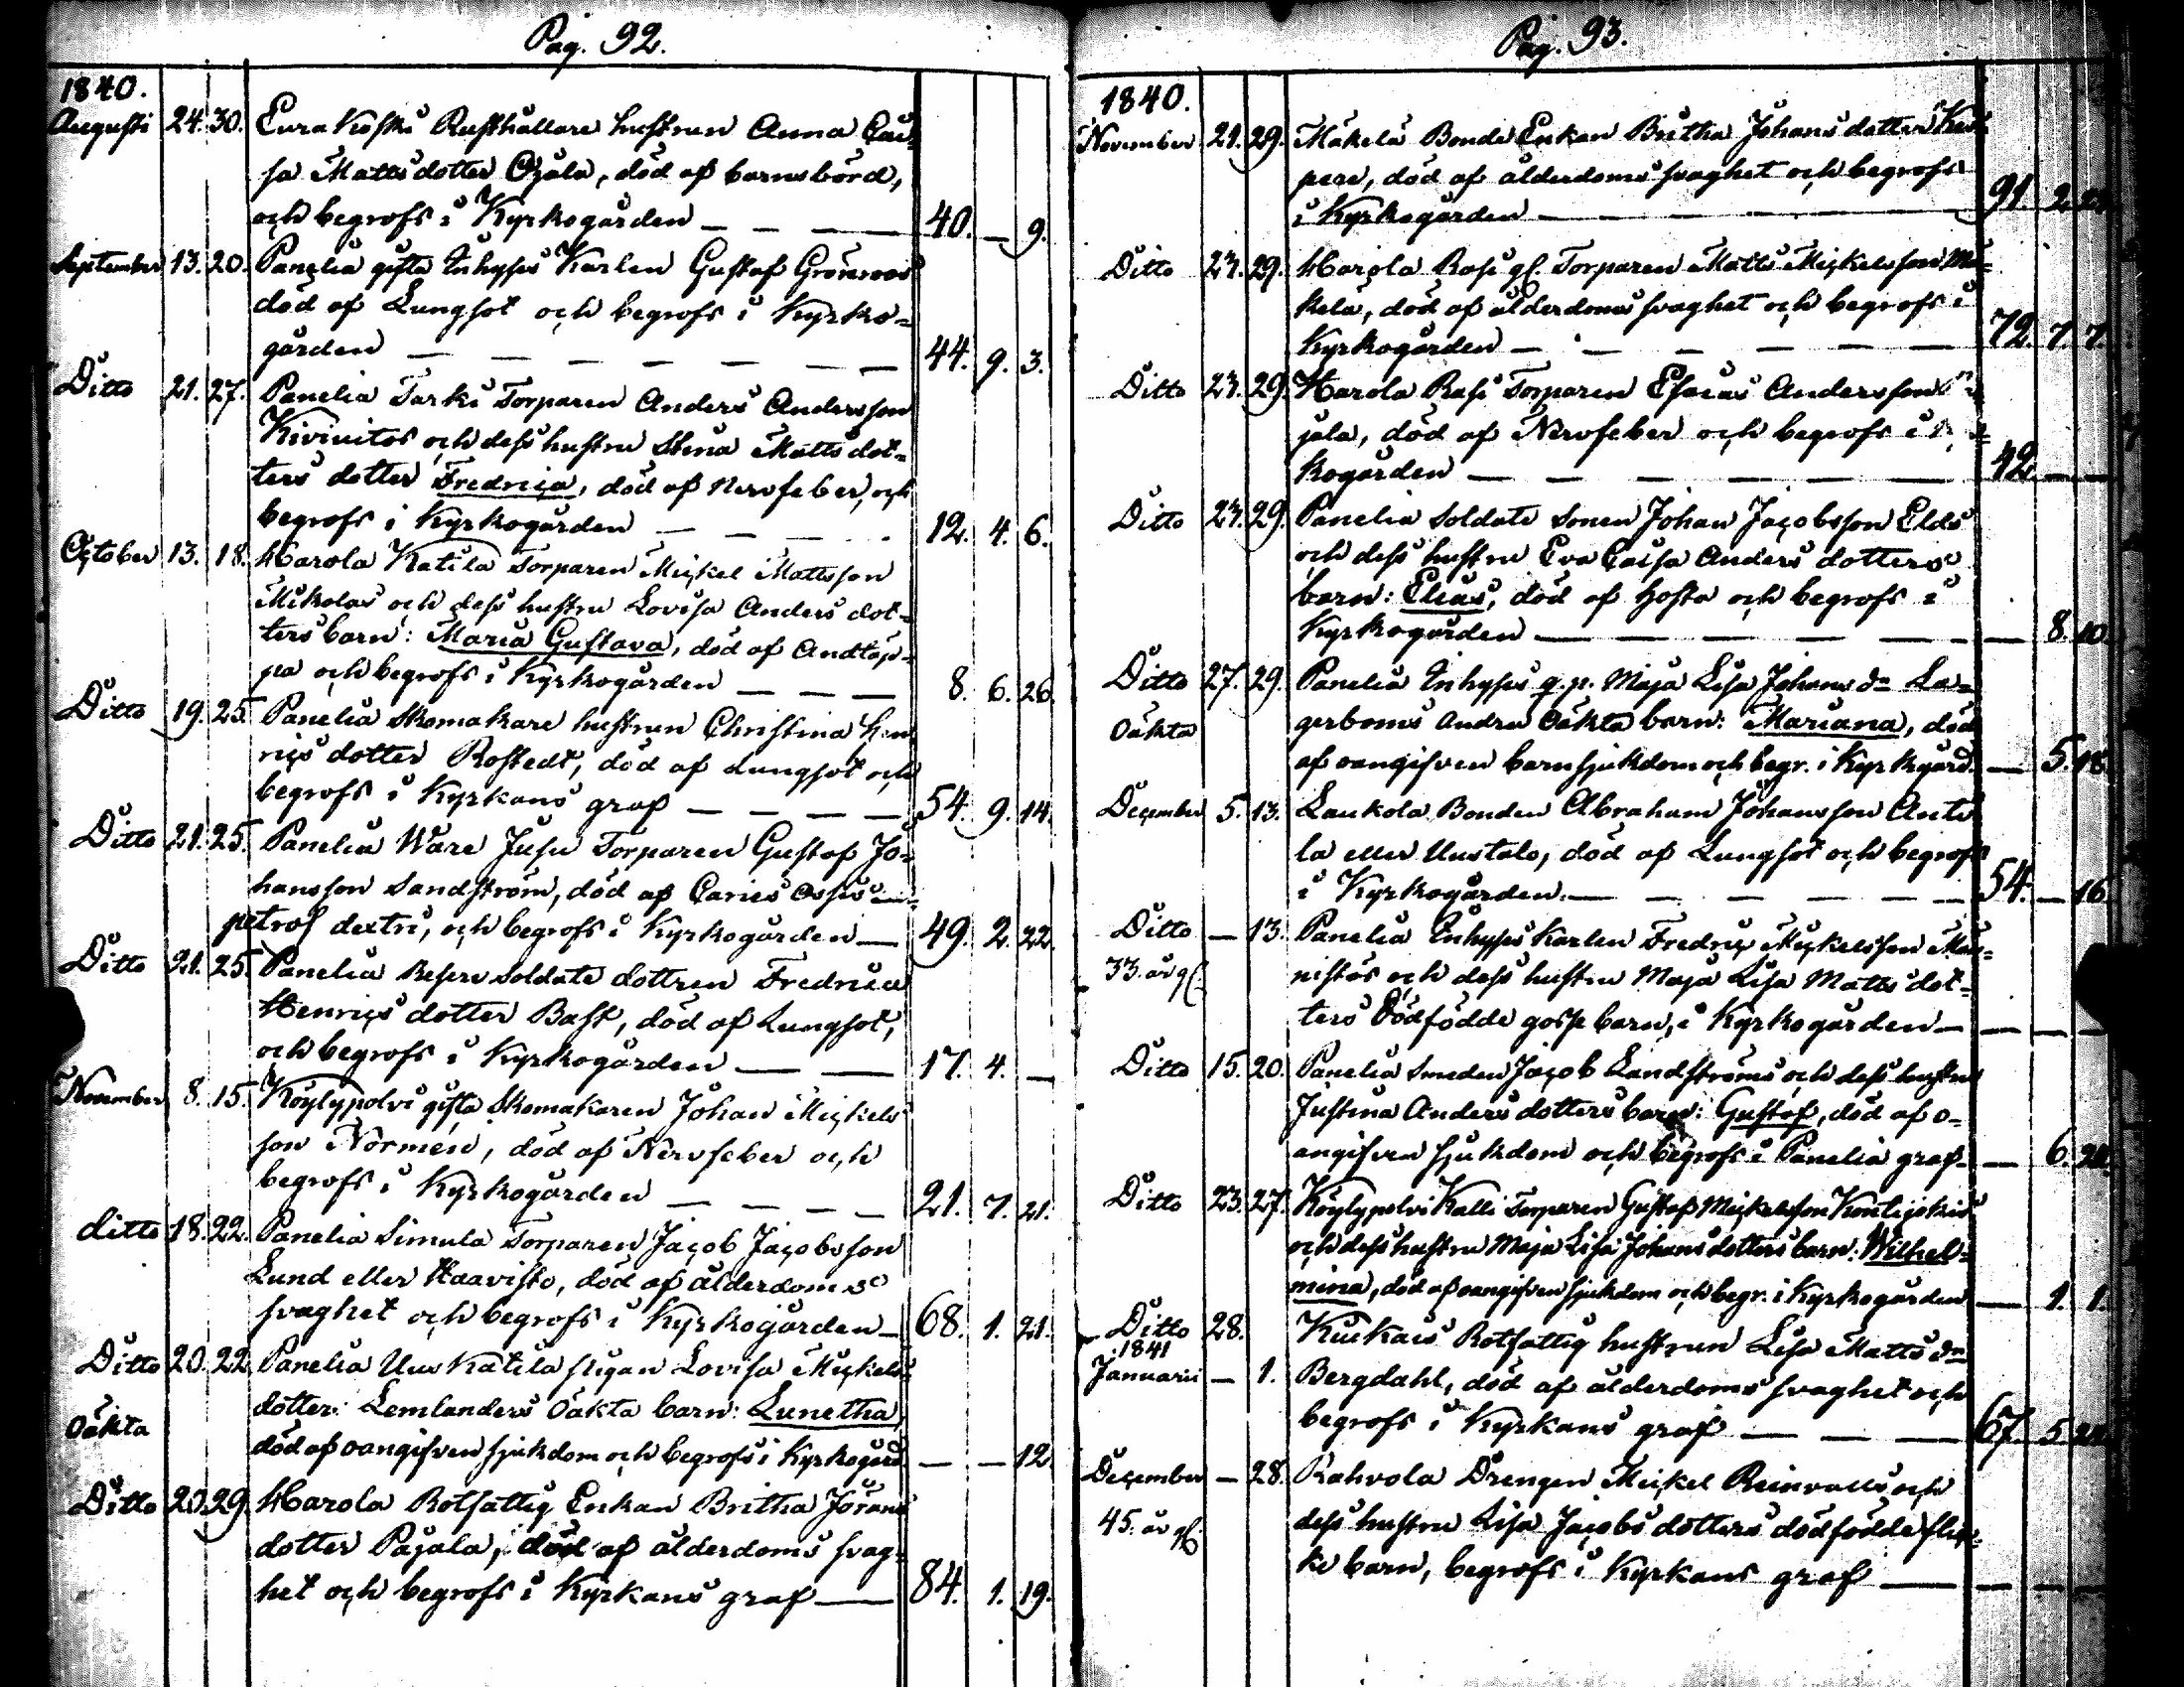 Pag. 92.
1840.
Augusti 24. 30. Eura Koski Rusthållare hustrun Anna Cai-
sa Matts dotter Ojala, död af barnsbörd,
och begrofs i Kyrkogården — — — 40. — 9.
September 13. 20. Panelia gifta Inhyses Karlen Gustaf Grönroos
död af Lungsot och begrofs i Kyrko-
gården — — — — — — 44. 9. 3.
Ditto 21. 27. Panelia Tarki Torparen Anders Andersson
Kiviniitos och dess hustru Stina Matts dot-
ters dotter Fredrica, död af Nervfeber, och
begrofs i Kyrkogården — — — 12. 4. 6.
October 13. 18. Harola Katila Torparen Mickel Mattsson
Mikolas och dess hustru Lovisa Anders dot-
ters barn: Maria Gustava, död af Andtäp-
pa och begrofs i Kyrkogården — — — 8. 6. 26.
Ditto 19. 25. Panelia Skomakare hustrun Christina Hen
rics dotter Rostedt, död af Lungsot och
begrofs i Kyrkans graf — — — — 54. 9. 14.
Ditto 21. 25. Panelia Ware Jusu Torparen Gustaf Jo-
hansson Sandström, död af Caries Ossis
petros dextri, och begrofs i Kyrkogården — 49. 2. 22.
Ditto 21. 25. Panelia Resere Soldats dottren Fredrica
Henrics dotter Bast, död af Lungsot,
och begrofs i Kyrkogården — — 17. 4. —
November 8. 15. Köylypolvi gifta Skomakaren Johan Mickels
son Normén, död af Nervfeber och
begrofs i Kyrkogården — — — — 21. 7. 21.
ditto 18. 22. Panelia Simula Torparen Jacob Jacobsson
Lund eller Haavisto, död af ålderdoms
svaghet och begrofs i Kyrkogården — 68. 1. 21.
Ditto 20. 22. Panelia Uus Katila pigan Lovisa Mickels
dotter Lemlanders Oäkta barn: Lunetha,
Oäkta
död af oangifven sjukdom och begrofs i Kyrkogård — — 12.
Ditto 20. 29. Harola Rotfattig Enkan Britha Jörans
dotter Pajala, död af ålderdoms svag-
het och begrofs i Kyrkans graf — 84. 1. 19.
Pag. 93.
1840.
November 21. 29. Mäkelä Bonde Enkan Britha Johans dotter
pere, död af ålderdoms svaghet och begrofs
i Kyrkogården — 91. 2.
Ditto 23. 29. Harola Rasi gl. Torparen Matts Mickelsson Mä-
kelä, död af ålderdoms svaghet och begrofs i
Kyrkogården — — — — — — 72. 7. 7.
Ditto 23. 29. Harola Rasi Torparen Esaias Andersson
jala, död af Nervfeber och begrofs i
kogården — — — — — 42. — —
Ditto 23. 29. Panelia Soldats Sonen Johan Jacobsson Elds
och dess hustru Eva Caisa Anders dotters
barn: Elias, död af Hosta och begrofs i
Kyrkogården — — — — — — 8. 10.
Ditto 27. 29. Panelia Inhyses q.p. Maja Lisa Johans dr La-
gerboms andra Oäkta barn: Mariana, död
Oäkta
af oangifven barnsjukdom och begr. i Kyrkogård. — 5. 18.
December 5. 13. Laukola Bonden Abraham Johansson Anti
la eller Uustalo, död af Lungsot och begrofs
i Kyrkogården. — — — — — — 54. — 16.
Ditto — 13. Panelia Inhyses Karlen Fredric Mickelsson
33. år gl.
nistös och dess hustru Maja Lisa Matts dot-
ters Dödfödde gosse barn, i Kyrkogården — — — —
Ditto 15. 20. Panelia Smeden Jacob Landströms och dess hustru
Justina Anders dotters barn: Gustaf, död af o-
angifven sjukdom och begrofs i Panelia graf — — 6.
Ditto 23. 27. Köylypolvi Kalli Torparen Gustaf Mickelsson
och dess hustru Maja Lisa Johans dotters barn: Wilhel-
mina, död af oangifven sjukdom och begr. i Kyrkogården — 1. 1.
Ditto 28. Kiukais Rotfattig hustrun Lisa Matts dr
1841
Januarii — 1. Bergdahl, död af ålderdoms svaghet och
begrofs i Kyrkans graf — — — 67. 5.
December — 28. Rahvola Drengen Mickel Reinvalls och
45. år gl.
dess hustru Lisa Jacobs dotters dödfödde flic-
ke barn, begrofs i Kyrkans graf — — — —